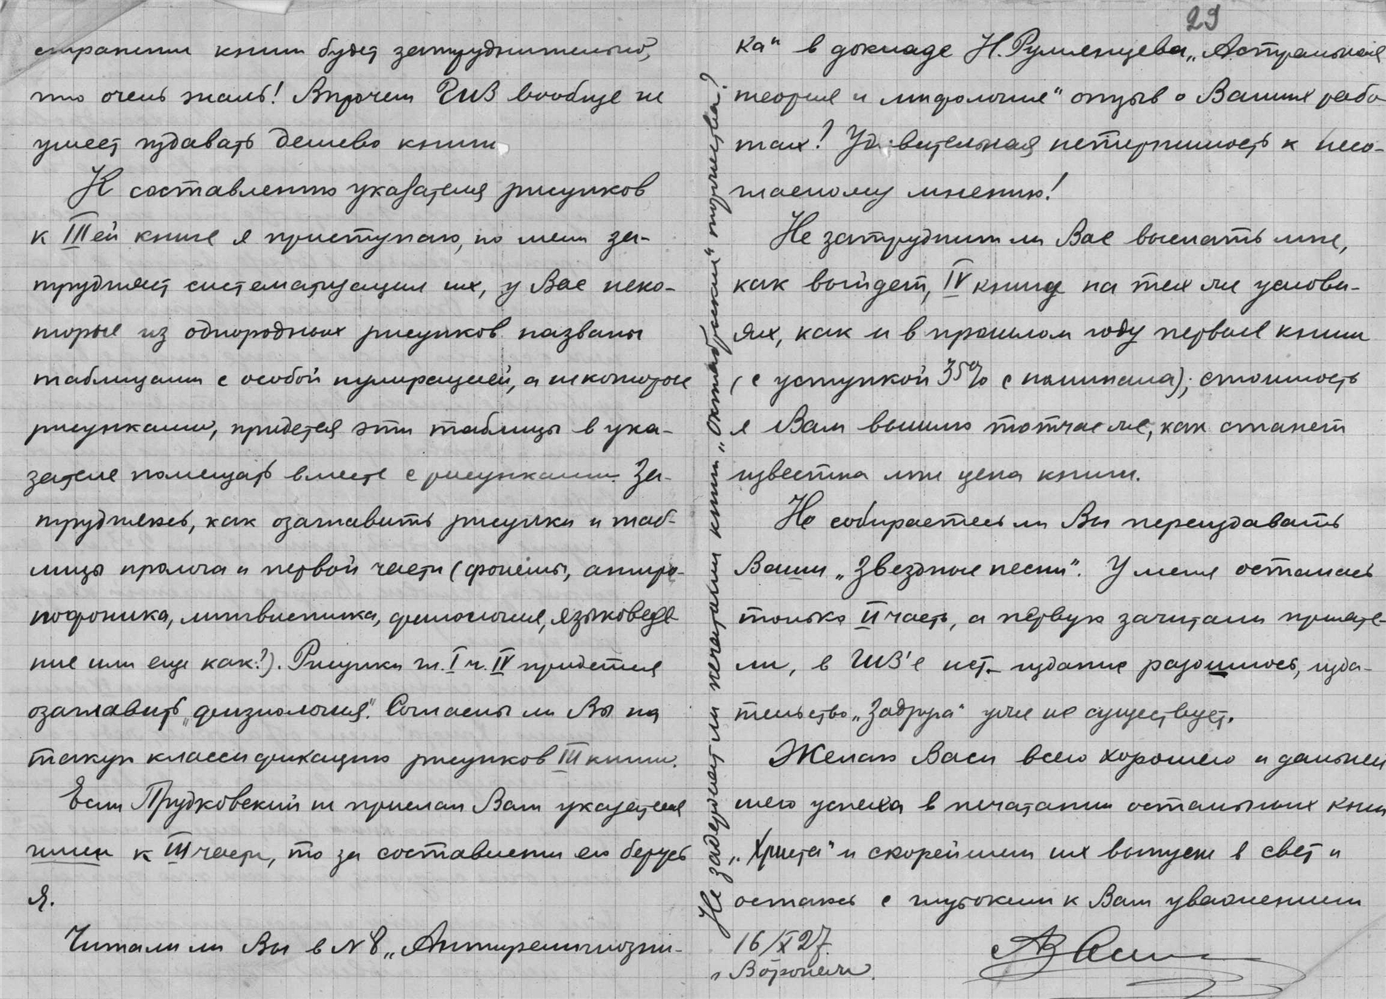 странении книги будет затруднительно,
что очень жаль! Впрочем ГИЗ вообще не
умеет издавать дешево книги.
К составлению указателя рисунков
к III ей книге я приступаю, но меня за-
трудняет систематизация их, у Вас неко-
торые из однородных рисунков названы
таблицами с особой нумерацией, а некоторые
рисунками, придется эти таблицы в ука-
зателе помещать вместе с рисунками. За-
трудняюсь, как озаглавить рисунки и таб-
лицы пролога и первой части (фонемы, антро-
пофоника, лингвистика, филология, языковеде-
ние или еще как?). Рисунки гл. I ч. IV придется
озаглавить „физиология". Согласны ли Вы на
такую классификацию рисунков III книги.
Если Прудковский не прислал Вам указателя
имен к III части, то за составление его берусь
я.
Читали ли Вы в № 8 „Антирелигиозни-
29
ка" в докладе Н. Румянцева „Астральная
теория и мифология" отзыв о Ваших рабо-
тах? Удивительная нетерпимость к несо-
гласному мнению!
Не затруднит ли Вас выслать мне,
как выйдет, IV книгу на тех же услови-
ях, как и в прошлом году первые книги
(с уступкой 35% с номинала); стоимость
я Вам вышлю тотчас же, как станет
известна мне цена книги.
Не собираетесь ли Вы переиздавать
Ваши „Звездные песни". У меня осталась
только II часть, а первую зачитали прияте-
ли, в ГИЗ'е нет издание разошлось, изда-
тельство „Задруга" уже не существует.
Желаю Вам всего хорошего и дальней
шего успеха в печатании остальных книг
„Христа" и скорейшем их выпуске в свет и
остаюсь с глубоким к Вам уважением
16/X 27.
г. Воронеж.
Не задержат ли печатания книги „Октябрьские" торжества?